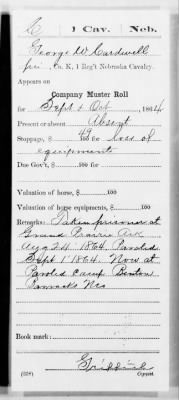 C 1 Cav. Neb.
George W. Cardwell
pri., Co. K, 1 Reg't Nebraska Cavalry.
Appears on
Company Muster Roll
for Sept & Oct, 1864.
Present or absent Absent
Stoppage, $ 49/100 for loss of
equipment
Due Gov't, $ 100 for
Valuation of horse, $ 100
Valuation of horse equipments, $ 100
Remarks: Taken prisoner at
Grand Prairie Ark
Aug 24 1864. Paroled
Sept 1 1864. Now at
Paroled Camp Benton
Barracks Mo
Book mark:
(358) Copyist.